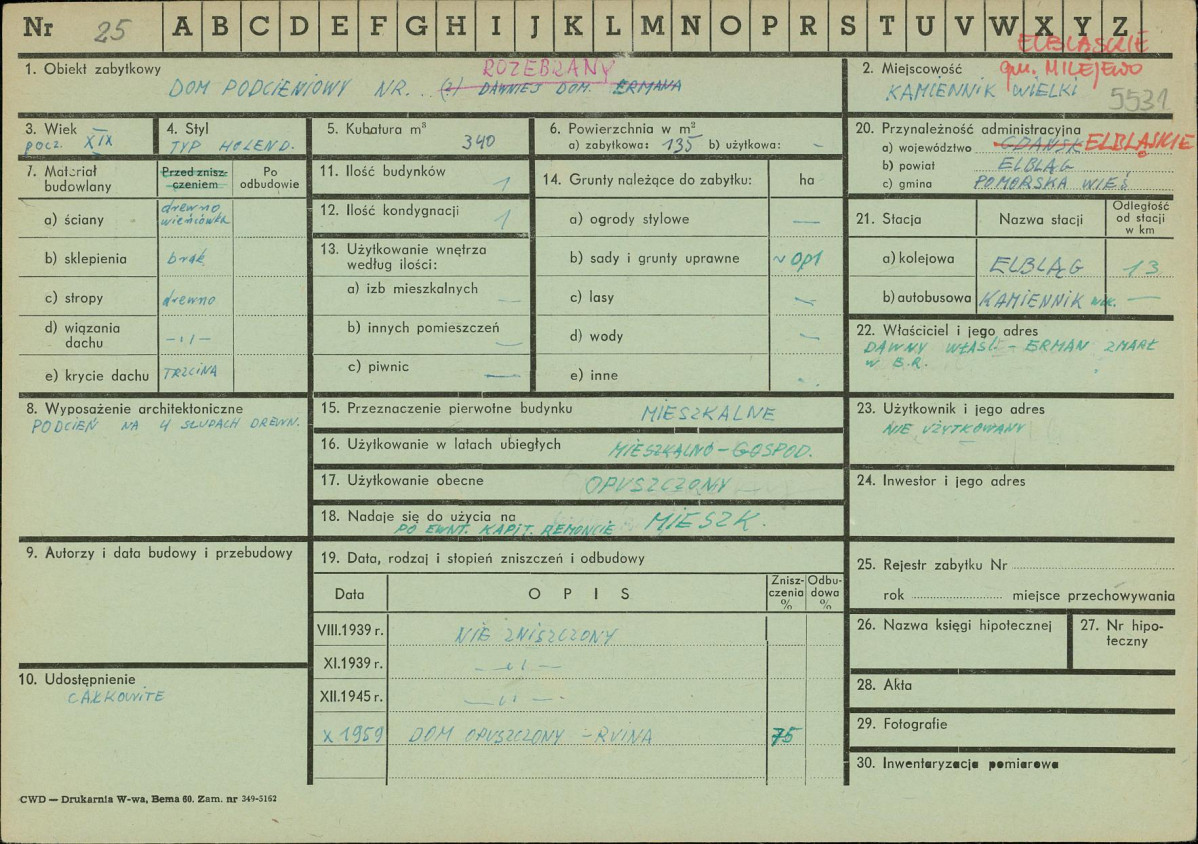 Nr 25 A B C D E F G H I J K L M N O P R S T U V W X Y Z
ELBLĄSKIE
1. Obiekt zabytkowy
ROZEBRANY
DOM PODCIENIOWY NR. . (?) DAWNIEJ DOM. ERMANA
2. Miejscowość gm. MILEJEWO
KAMIENNIK WIELKI 5531
3. Wiek
pocz. XIX
4. Styl
TYP HOLEND.
5. Kubatura m³
340
6. Powierzchnia w m²
a) zabytkowa: 135 b) użytkowa: -
20. Przynależność administracyjna
a) województwo GDAŃSK ELBLĄSKIE
b) powiat ELBLĄG
c) gmina POMORSKA WIEŚ
7. Materiał budowlany
Przed znisz-
czeniem
Po
odbudowie
a) ściany drewno
wieńcówka
b) sklepienia brak
c) stropy drewno
d) wiązania
dachu -"-
e) krycie dachu TRZCINA
11. Ilość budynków 1
12. Ilość kondygnacji 1
13. Użytkowanie wnętrza
według ilości:
a) izb mieszkalnych —
b) innych pomieszczeń —
c) piwnic —
14. Grunty należące do zabytku: ha
a) ogrody stylowe —
b) sady i grunty uprawne ~ 0p1
c) lasy —
d) wody —
e) inne
21. Stacja Nazwa stacji Odległość
od stacji
w km
a) kolejowa ELBLĄG 13
b) autobusowa KAMIENNIK WLK. —
22. Właściciel i jego adres
DAWNY WŁAŚC. - ERMAN ZMARŁ
W B.R.
8. Wyposażenie architektoniczne
PODCIEŃ NA 4 SŁUPACH DREWN.
15. Przeznaczenie pierwotne budynku MIESZKALNE
16. Użytkowanie w latach ubiegłych MIESZKALNO-GOSPOD.
17. Użytkowanie obecne OPUSZCZONY
18. Nadaje się do użycia na MIESZK.
PO EWNT. KAPIT. REMONCIE
23. Użytkownik i jego adres
NIE UŻYTKOWANY
24. Inwestor i jego adres
9. Autorzy i data budowy i przebudowy
19. Data, rodzaj i stopień zniszczeń i odbudowy
Data OPIS Znisz-
czenia
% Odbu-
dowa
%
VIII.1939 r. NIE ZNISZCZONY
XI.1939 r. -"-
XII.1945 r. -"-
X 1959 DOM OPUSZCZONY - RUINA 75
25. Rejestr zabytku Nr
rok miejsce przechowywania
26. Nazwa księgi hipotecznej
27. Nr hipo-
teczny
10. Udostępnienie
CAŁKOWITE
28. Akta
29. Fotografie
30. Inwentaryzacja pomiarowa
CWD — Drukarnia W-wa, Bema 60. Zam. nr 349-5162